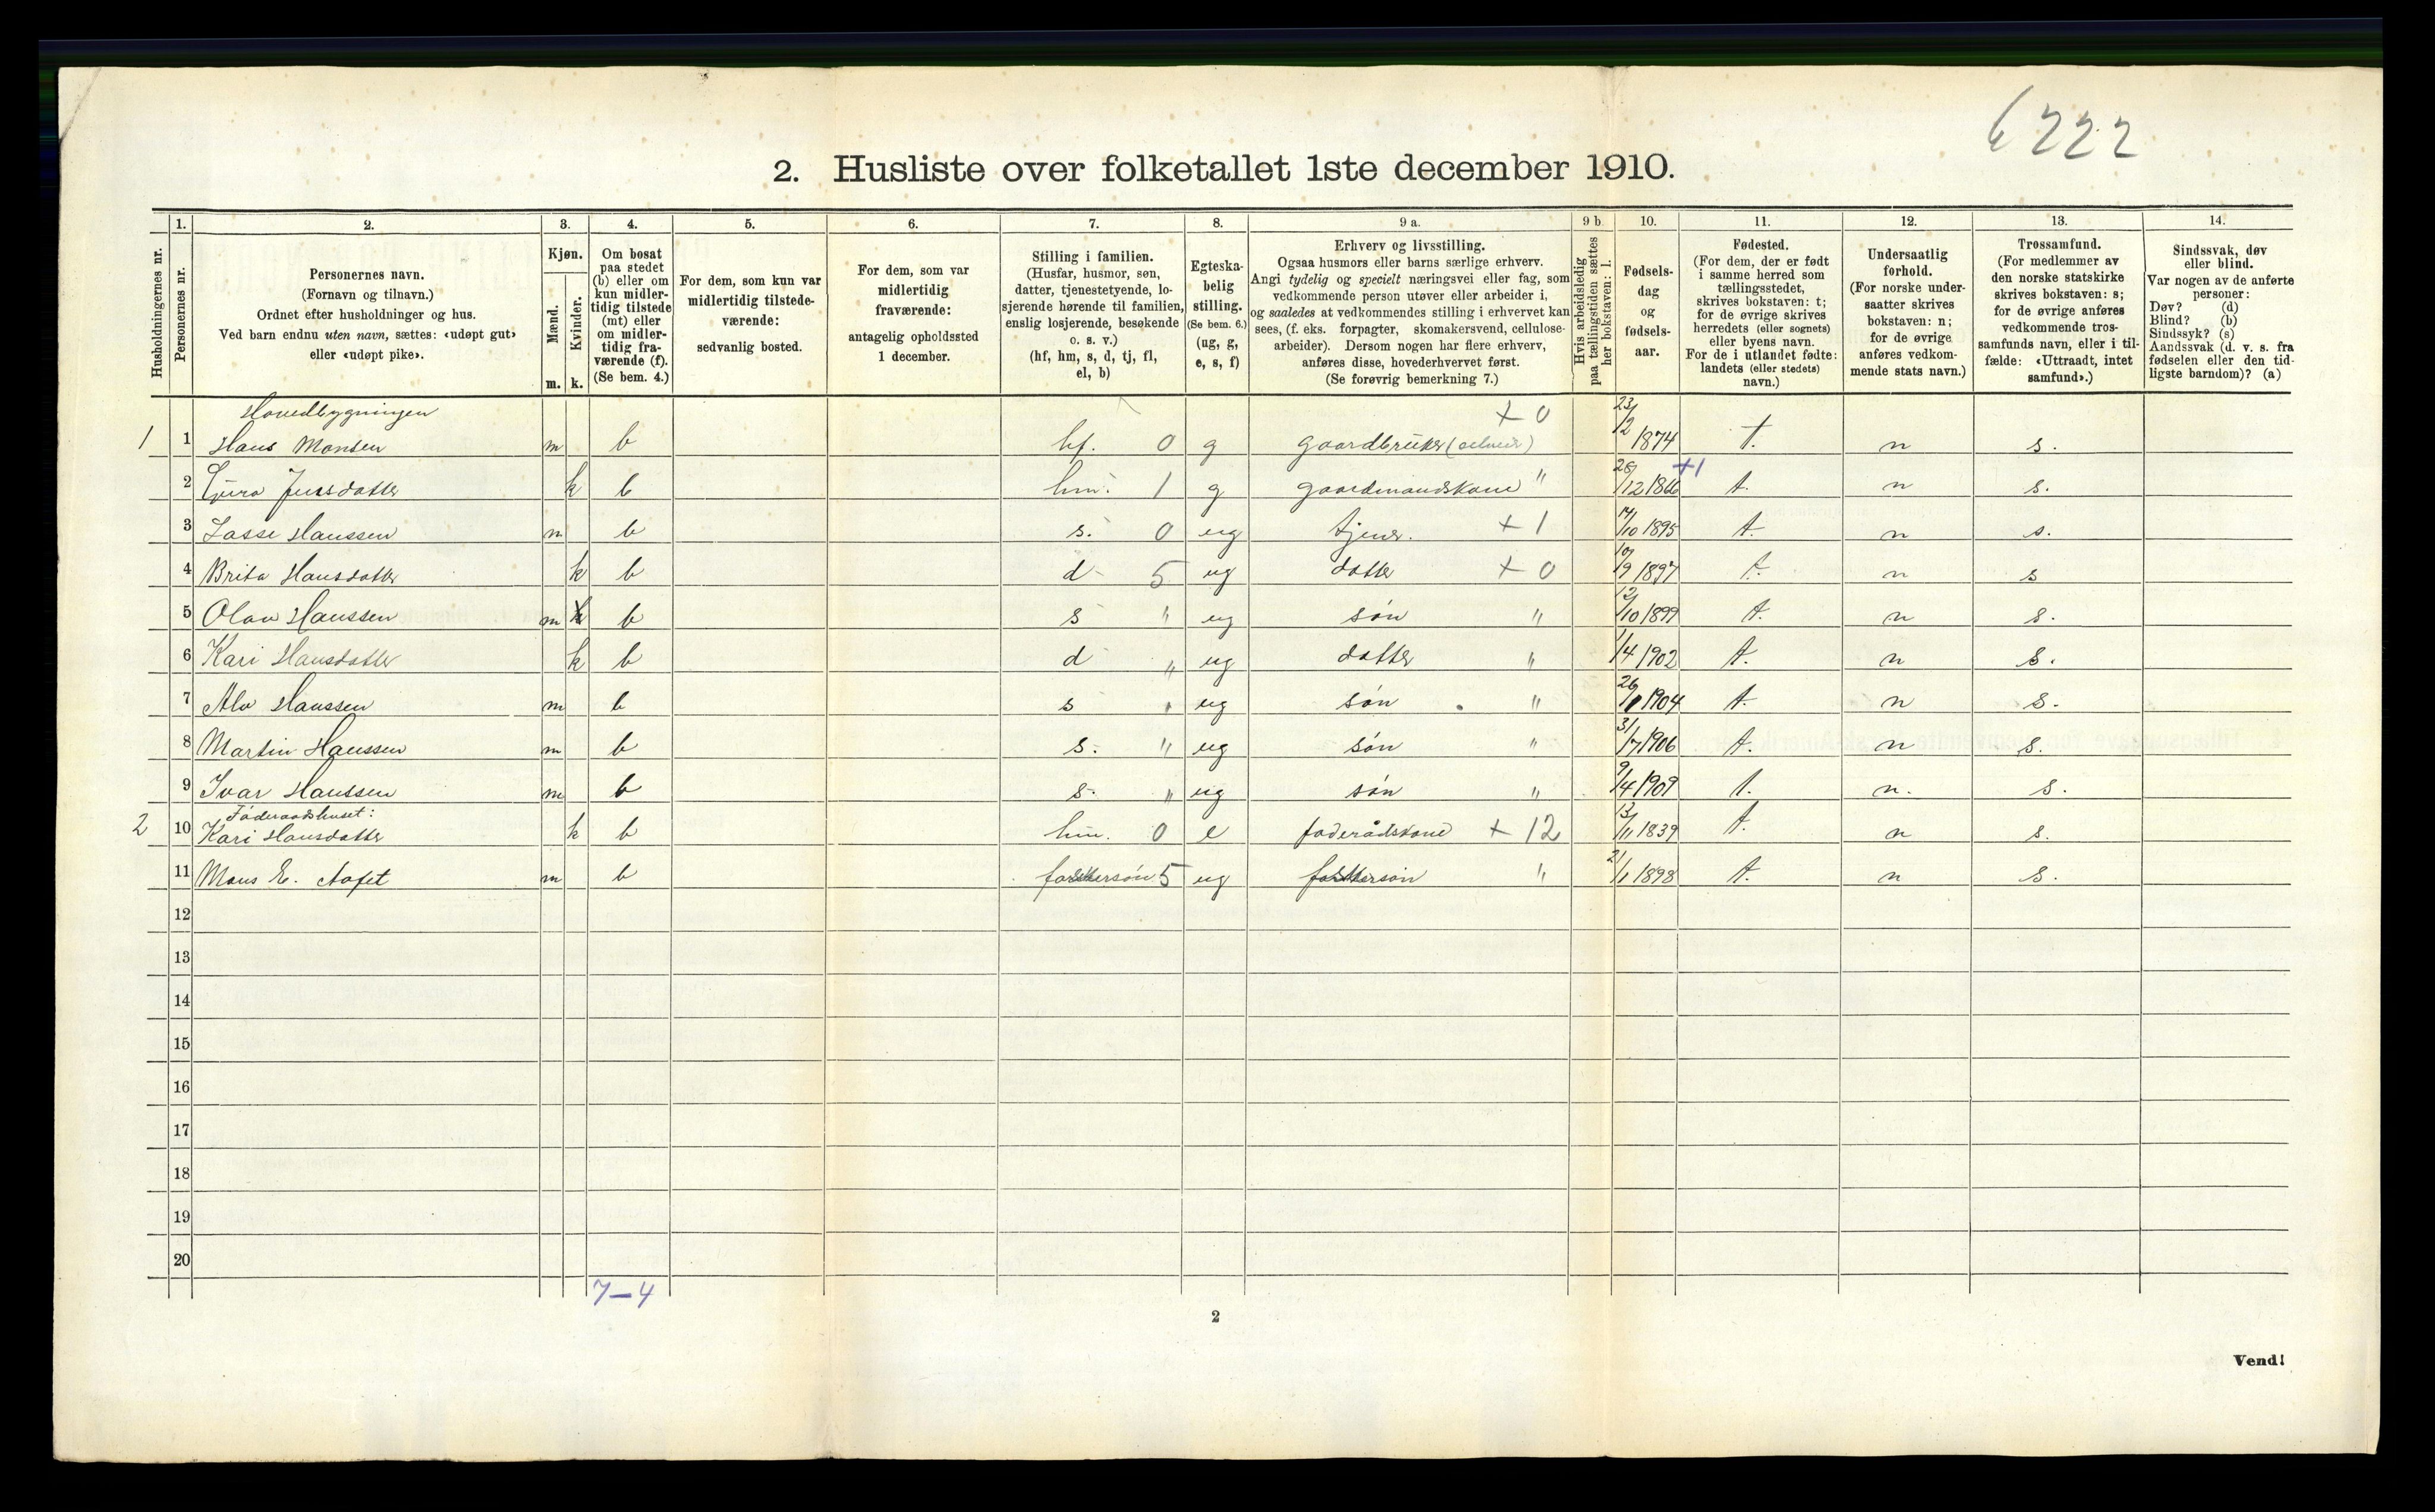 6222
2. Husliste over folketallet 1ste december 1910.
Husholdningernes nr.
1. Personernes nr.
2. Personernes navn.
(Fornavn og tilnavn.)
Ordnet efter husholdninger og hus.
Ved barn endnu uten navn, sættes: «udøpt gut»
eller «udøpt pike».
3. Kjøn.
Mænd. m.
Kvinder. k.
4. Om bosat
paa stedet
(b) eller om
kun midler-
tidig tilstede
(mt) eller
om midler-
tidig fra-
værende (f).
(Se bem. 4.)
5. For dem, som kun var
midlertidig tilstede-
værende:
sedvanlig bosted.
6. For dem, som var
midlertidig
fraværende:
antagelig opholdssted
1 december.
7. Stilling i familien.
(Husfar, husmor, søn,
datter, tjenestetyende, lo-
sjerende hørende til familien,
enslig losjerende, besøkende
o. s. v.)
(hf, hm, s, d, tj, fl,
el, b)
8. Egteska-
belig
stilling.
(Se bem. 6.)
(ug, g,
e, s, f)
9 a. Erhverv og livsstilling.
Ogsaa husmors eller barns særlige erhverv.
Angi tydelig og specielt næringsvei eller fag, som
vedkommende person utøver eller arbeider i,
og saaledes at vedkommendes stilling i erhvervet kan
sees, (f. eks. forpagter, skomakersvend, cellulose-
arbeider). Dersom nogen har flere erhverv,
anføres disse, hovederhvervet først.
(Se forøvrig bemerkning 7.)
9 b. Hvis arbeidsledig
paa tællingstiden sættes
her bokstaven: l.
10. Fødsels-
dag
og
fødsels-
aar.
11. Fødested.
(For dem, der er født
i samme herred som
tællingsstedet,
skrives bokstaven: t;
for de øvrige skrives
herredets (eller sognets)
eller byens navn.
For de i utlandet fødte:
landets (eller stedets)
navn.)
12. Undersaatlig
forhold.
(For norske under-
saatter skrives
bokstaven: n;
for de øvrige
anføres vedkom-
mende stats navn.)
13. Trossamfund.
(For medlemmer av
den norske statskirke
skrives bokstaven: s;
for de øvrige anføres
vedkommende tros-
samfunds navn, eller i til-
fælde: «Uttraadt, intet
samfund».)
14. Sindssvak, døv
eller blind.
Var nogen av de anførte
personer:
Døv? (d)
Blind? (b)
Sindssyk? (s)
Aandssvak (d. v. s. fra
fødselen eller den tid-
ligste barndom)? (a)
Hovedbygningen
1 1 Hans Monsen m b hf. 0 g gaardbruker (selveier) + 0 23/2 1874 t. n s.
2 Jensdatter k b hm. 1 g gaardmandskone " 28/12 1866 +1 t. n s.
3 Lasse Hanssen m b s. 0 ug tjener. + 1 14/10 1895 t. n s.
4 Brita Hansdatter k b d 5 ug datter + 0 10/9 1897 t. n s
5 Olav Hanssen m k b s " ug søn " 12/10 1899 t. n s.
6 Kari Hansdatter k b d " ug datter " 1/4 1902 t. n s.
7 Alv Hanssen m b s " ug søn " 26/1 1904 t. n s.
8 Martin Hanssen m b s. " ug søn " 3/7 1906 t. n s.
9 Ivar Hanssen m b s. " ug søn " 9/4 1909 t. n. s.
Føderaadshuset:
2 10 Kari Hansdatter k b hm. 0 e føderådskone + 12 13/11 1839 t. n s.
11 Mons E. m b fostersøn 5 ug fostersøn " 2/1 1898 t. n s.
12
13
14
15
16
17
18
19
20
7-4
2
Vend!